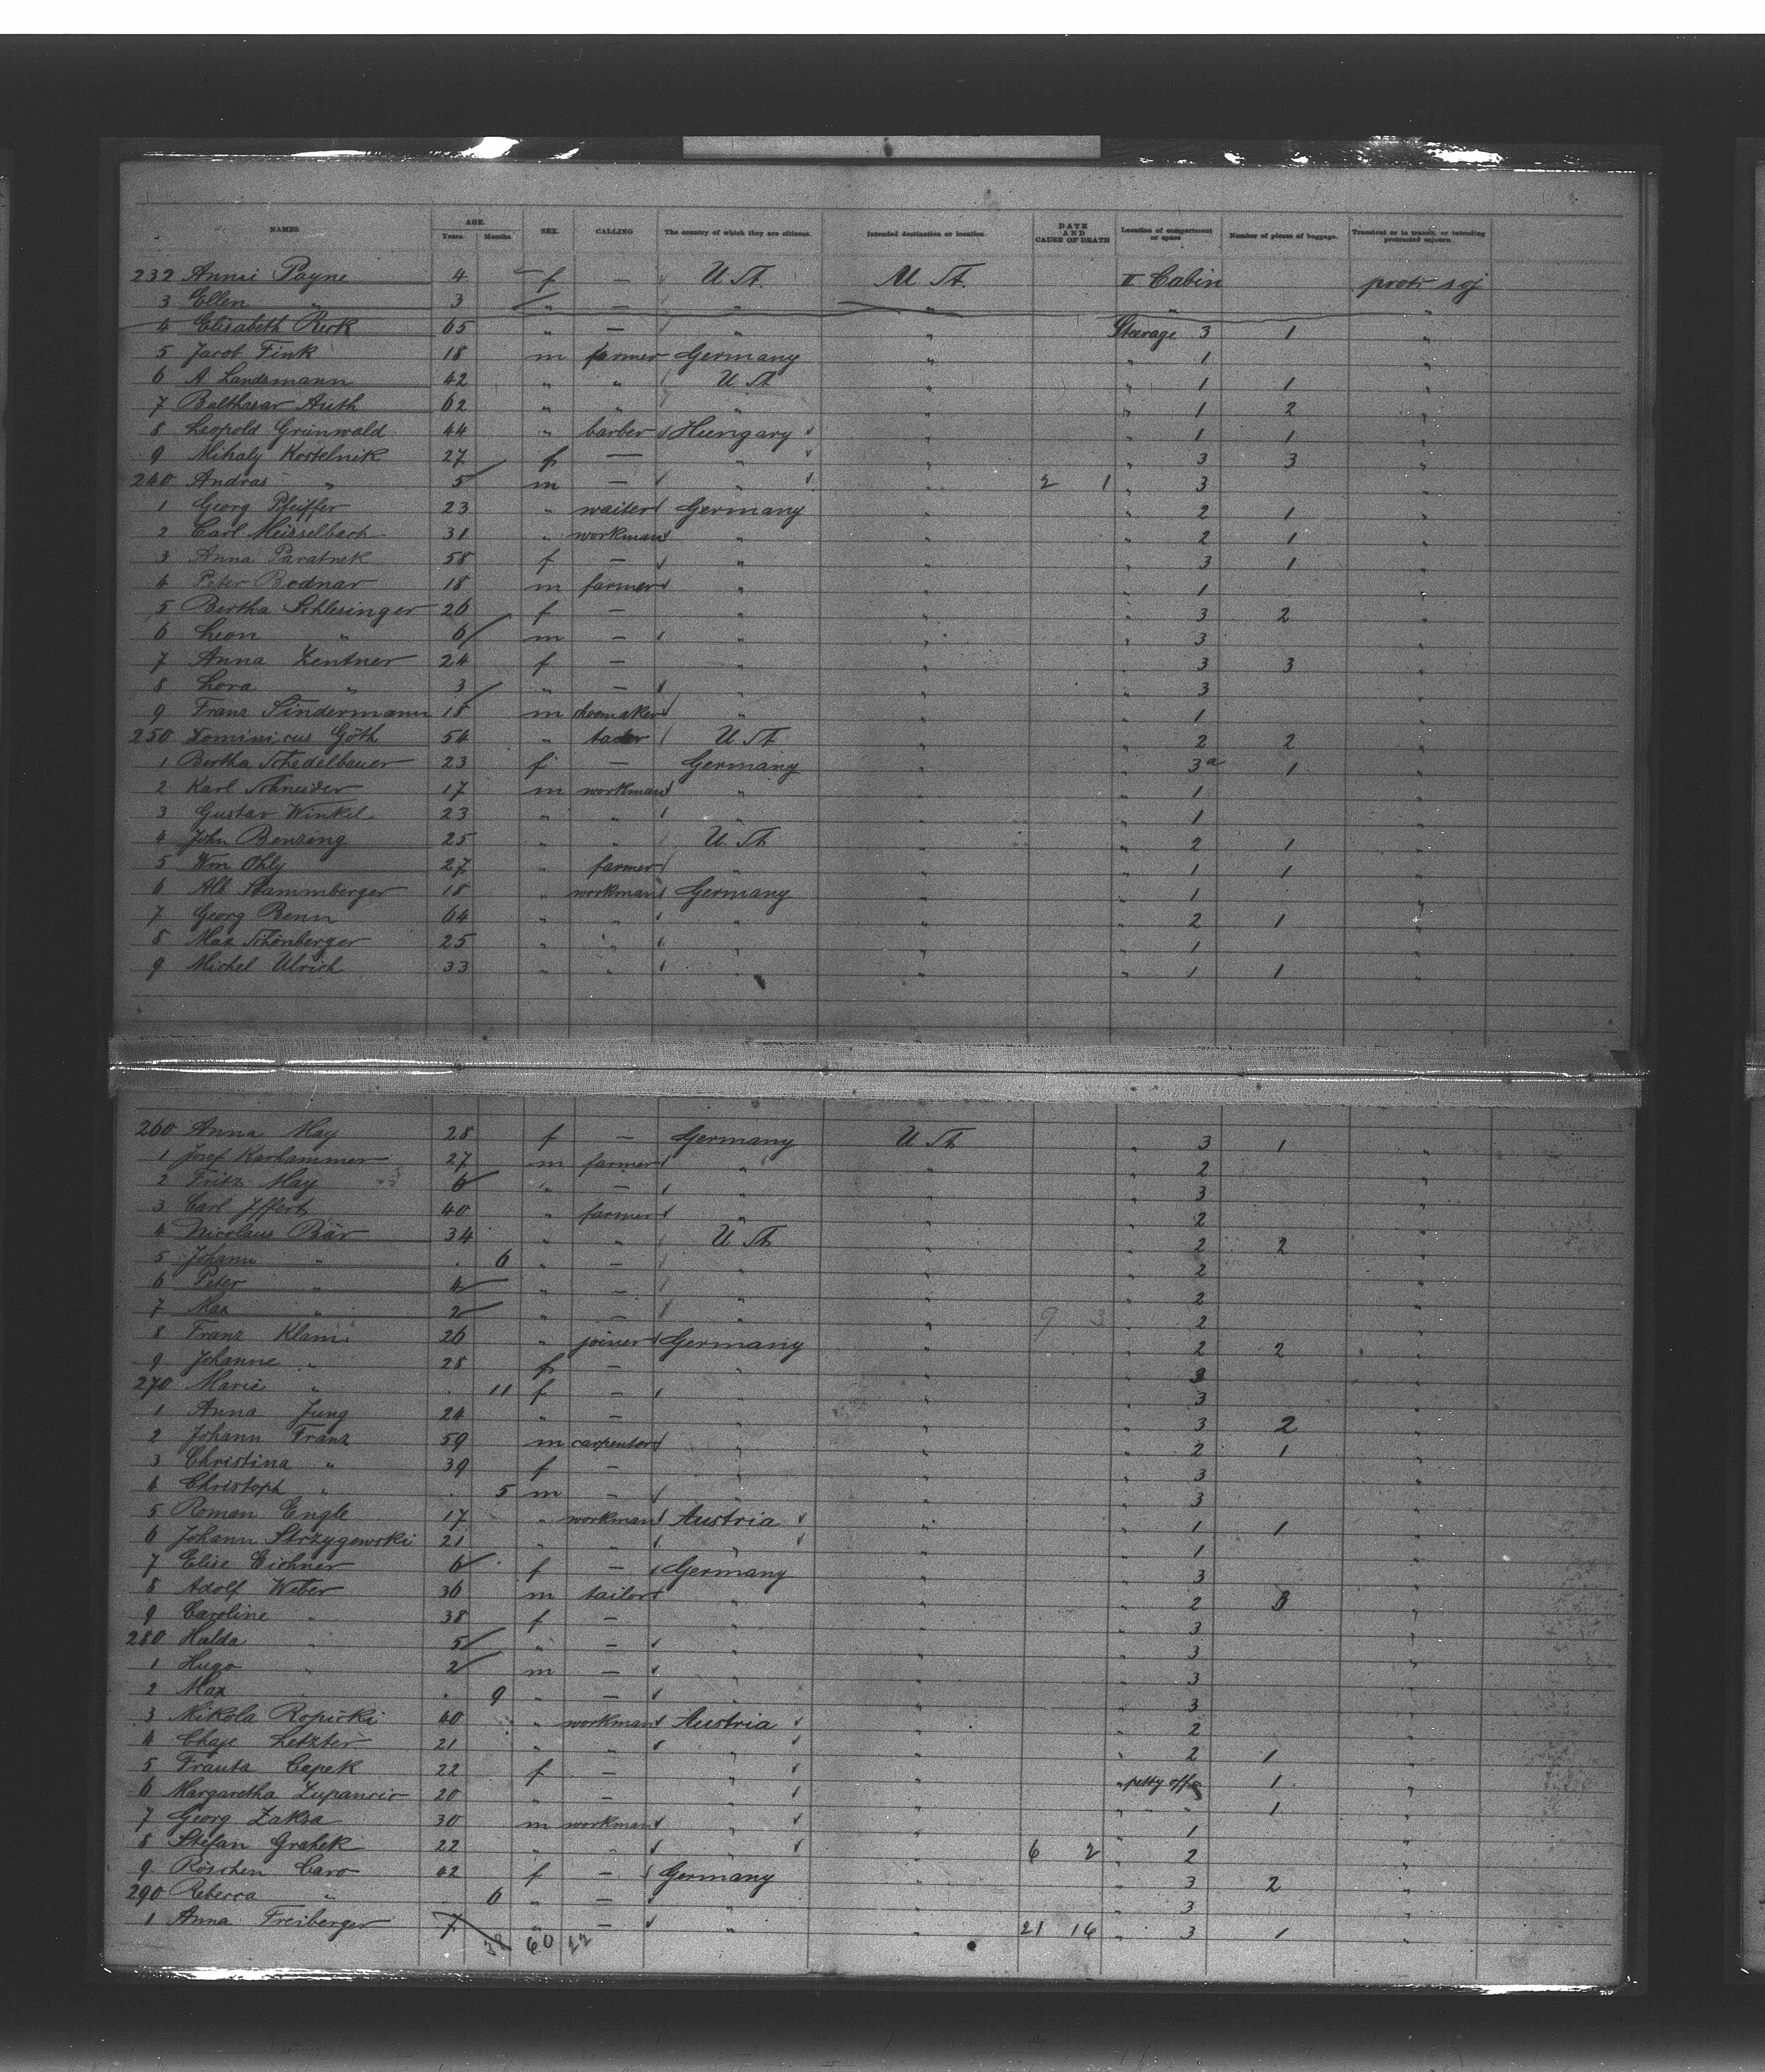 NAMES AGE. Years. Months. SEX. CALLING The country of which they are citizens. Intended destination or location. DATE AND CAUSE OF DEATH Location of compartment or space Number of pieces of baggage. Transient or in transit, or intending protracted sojourn
232 Annie Payne 4 f — U. St. U. St. II Cabin protr soj
3 Ellen " 3 " — " " " "
4 Elisabeth Rerk 65 " — " " Steerage 3 1 "
5 Jacob Fink 18 m farmer Germany " " 1 "
6 A Landsmann 42 " " U. St. " " 1 1 "
7 Balthasar Auth 62 " " " " " 1 2 "
8 Leopold Grünwald 44 " barber Hungary " " 1 1 "
9 Mihaly Kostelnik 27 f — " " " 3 3 "
240 Andras " 5 m — " " 2 1 " 3 "
1 Georg Pfeiffer 23 " waiter Germany " " 2 1 "
2 Carl Meisselbach 31 " workman " " " 2 1 "
3 Anna Paratnek 58 f — " " " 3 1 "
4 Peter Bodnar 18 m farmer " " " 1 "
5 Bertha Schlesinger 26 f — " " " 3 2 "
6 Leon " 6 m — " " " 3 "
7 Anna Zentner 24 f — " " " 3 3 "
8 Lora " 3 " — " " " 3 "
9 Franz Sindermann 18 m shoemaker " " " 1 "
250 Dominicus Göth 54 " U. St. " " 2 2 "
1 Bertha Schedelbauer 23 f — Germany " " 3a 1 "
2 Karl Schneider 17 m workman " " " 1 "
3 Gustav Winkel 23 " " " " " 1 "
4 John Benseng 25 " " U. St. " " 2 1 "
5 Wm Ohly 27 " farmer " " " 1 1 "
6 Alb Stammberger 18 " workman Germany " " 1 "
7 Georg Benn 64 " " " " " 2 1 "
8 Max Schönberger 25 " " " " " 1 "
9 Michel Ulrich 33 " " " " " 1 1 "
260 Anna May 28 f — Germany U. St. " 3 1 "
1 Josef Karhammer 27 m farmer " " " 2 "
2 Fritz May 6 " — " " " 3 "
3 Carl Iffert 40 " farmer " " " 2 "
4 Nicolaus Bär 34 " " U. St. " " 2 2 "
5 Johann " . 6 " — " " " 2 "
6 Peter " 4 " — " " " 2 "
7 Max " 2 " — " " 9 3 " 2 "
8 Franz Klam 26 " joiner Germany " " 2 2 "
9 Johanne " 28 f — " " " 3 "
270 Marie " . 11 f — " " " 3 "
1 Anna Jung 24 " — " " " 3 2 "
2 Johann Franz 59 m carpenter " " " 2 1 "
3 Christina " 39 f — " " " 3 "
4 Christoph " . 5 m — " " " 3 "
5 Roman Engle 17 " workman Austria " " 1 1 "
6 Johann Strzygowski 21 " " " " " 1 "
7 Elise Eichner 6 f — Germany " " 3 "
8 Adolf Weber 36 m tailor " " " 2 3 "
9 Caroline " 38 f — " " " 3 "
280 Hulda " 5 " — " " " 3 "
1 Hugo " 2 m — " " " 3 "
2 Max . 9 " — " " " 3 "
3 Mikola Ropicki 40 " workman Austria " " 2 "
4 Chaje Letzter 21 " " " " " 2 1 "
5 Frauta Capek 22 f — " " " petty off 1 "
6 Margaretha Zupancic 20 " — " " " " " 1 "
7 Georg Zaksa 30 m workman " " " 1 "
8 Stefan Grahek 22 " " " " 6 2 " 2 "
9 Röschen Caro 42 f — Germany " " 3 2 "
290 Rebecca " . 6 " — " " " 3 "
1 Anna Freiberger 7 " — " " 21 16 " 3 1 "
60 22